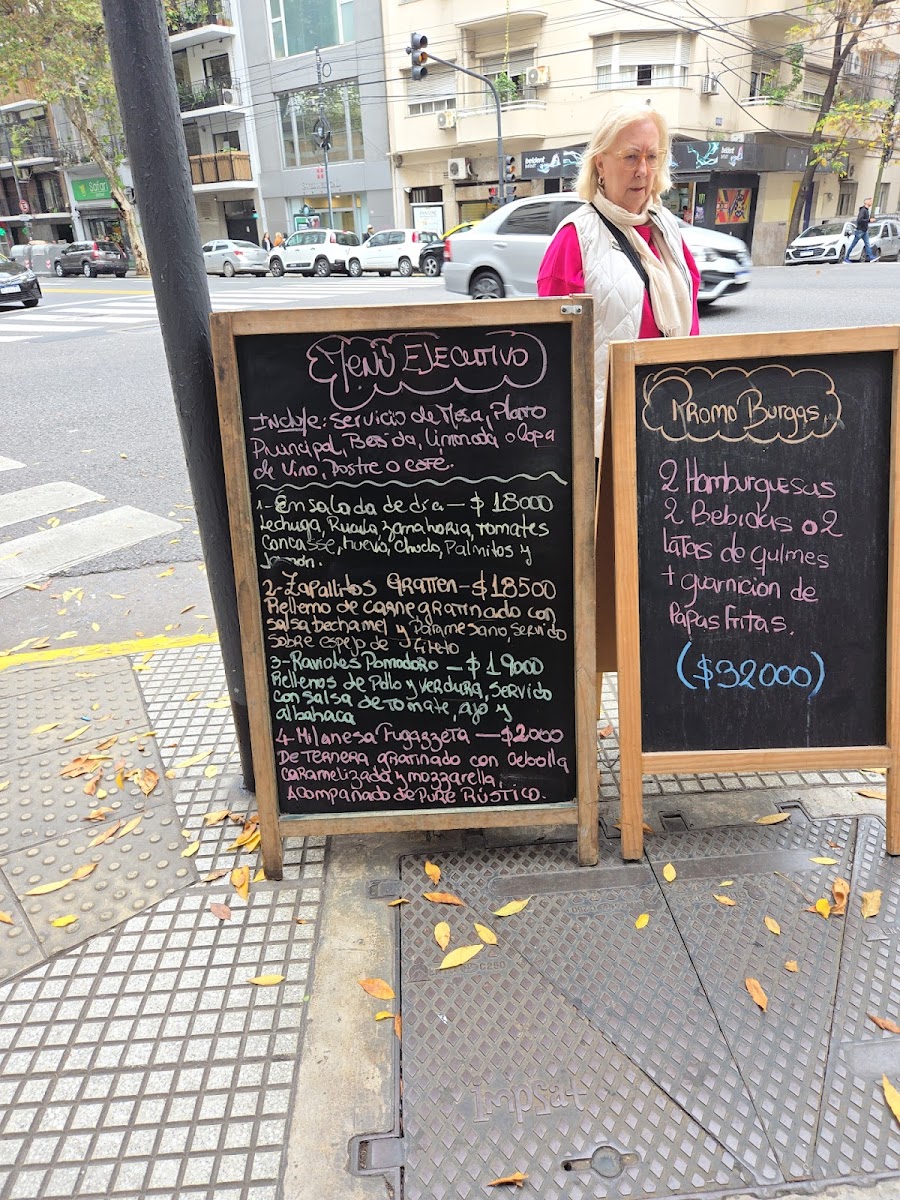 Menú EJECUTIVO
Incluye: Servicio de Mesa, Plato
Principal, Bebida, Limonada o Copa
de Vino, Postre o café.
1- Ensalada de día — $18000
Lechuga, Rucula, zanahoria, tomates
Concasse, huevo, choclo, Palmitos y
Jamón.
2- Zapallitos Gratten - $18500
Relleno de carne gratinado con
salsa bechamel y Parmesano, Servido
sobre espejo de fileto
3- Ravioles Pomodoro — $19000
Rellenos de Pollo y verdura, servido
con salsa de tomate, ajo y
albahaca
4- Milanesa Fugazzeta — $2000
DE TERNERA gratinado con cebolla
Caramelizada y mozzarella,
Acompañado de Puré Rústico.
Promo Burgas
2 Hamburguesas
2 Bebidas o 2
latas de quilmes
+ guarnición de
Papas Fritas.
($32000)
Safari
beldent
impsat